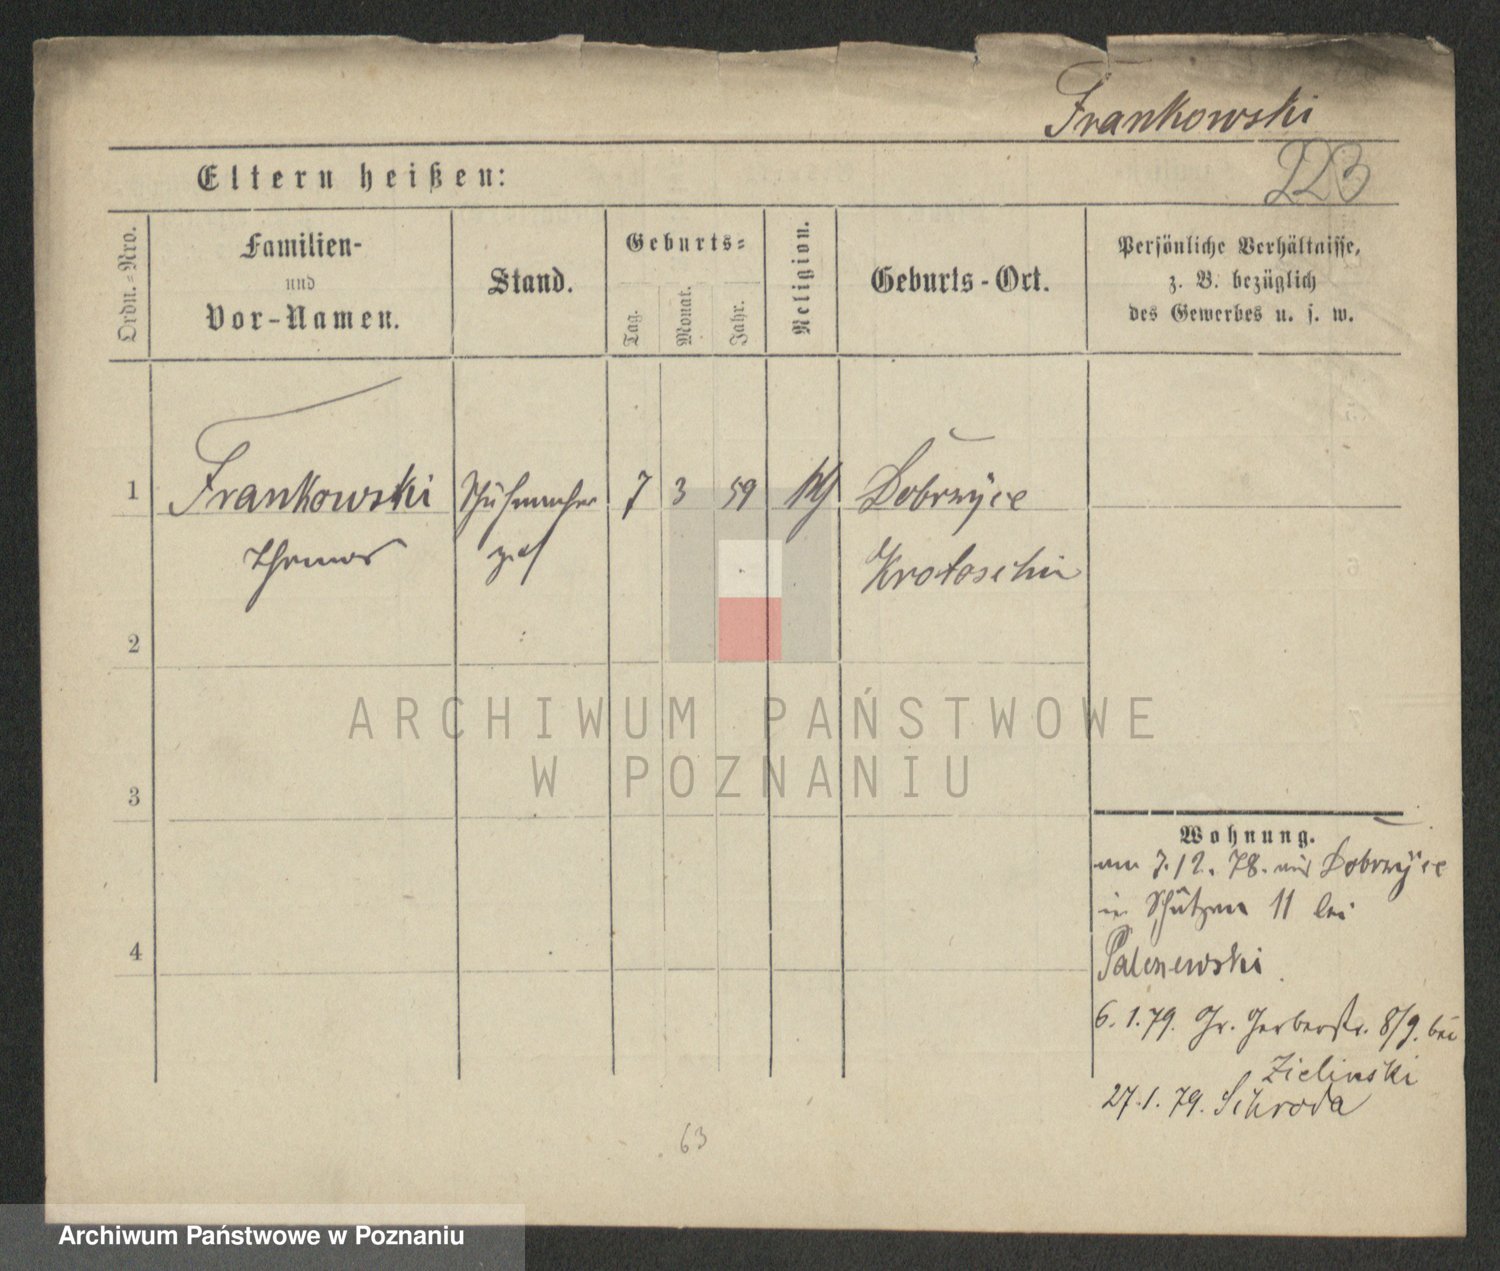 Frankowski
Eltern heißen:
223
Ordn.-Nro.
Familien-
und
Vor-Namen.
Stand.
Geburts-
Tag.
Monat.
Jahr.
Religion.
Geburts-Ort.
Persönliche Verhältnisse,
z. B. bezüglich
des Gewerbes u. s. w.
1 Frankowski Schuhmacher 7 3 59 kth Dobrzyce
Thomas ges Krotoschin
2
3
4
ARCHIWUM PAŃSTWOWE
W POZNANIU
Wohnung.
am 7.12.78. aus Dobrzyce
in Schützen 11 bei
6.1.79. Gr. Gerberstr. 8/9. bei
Zielinski
27.1.79. Schroda
63
Archiwum Państwowe w Poznaniu